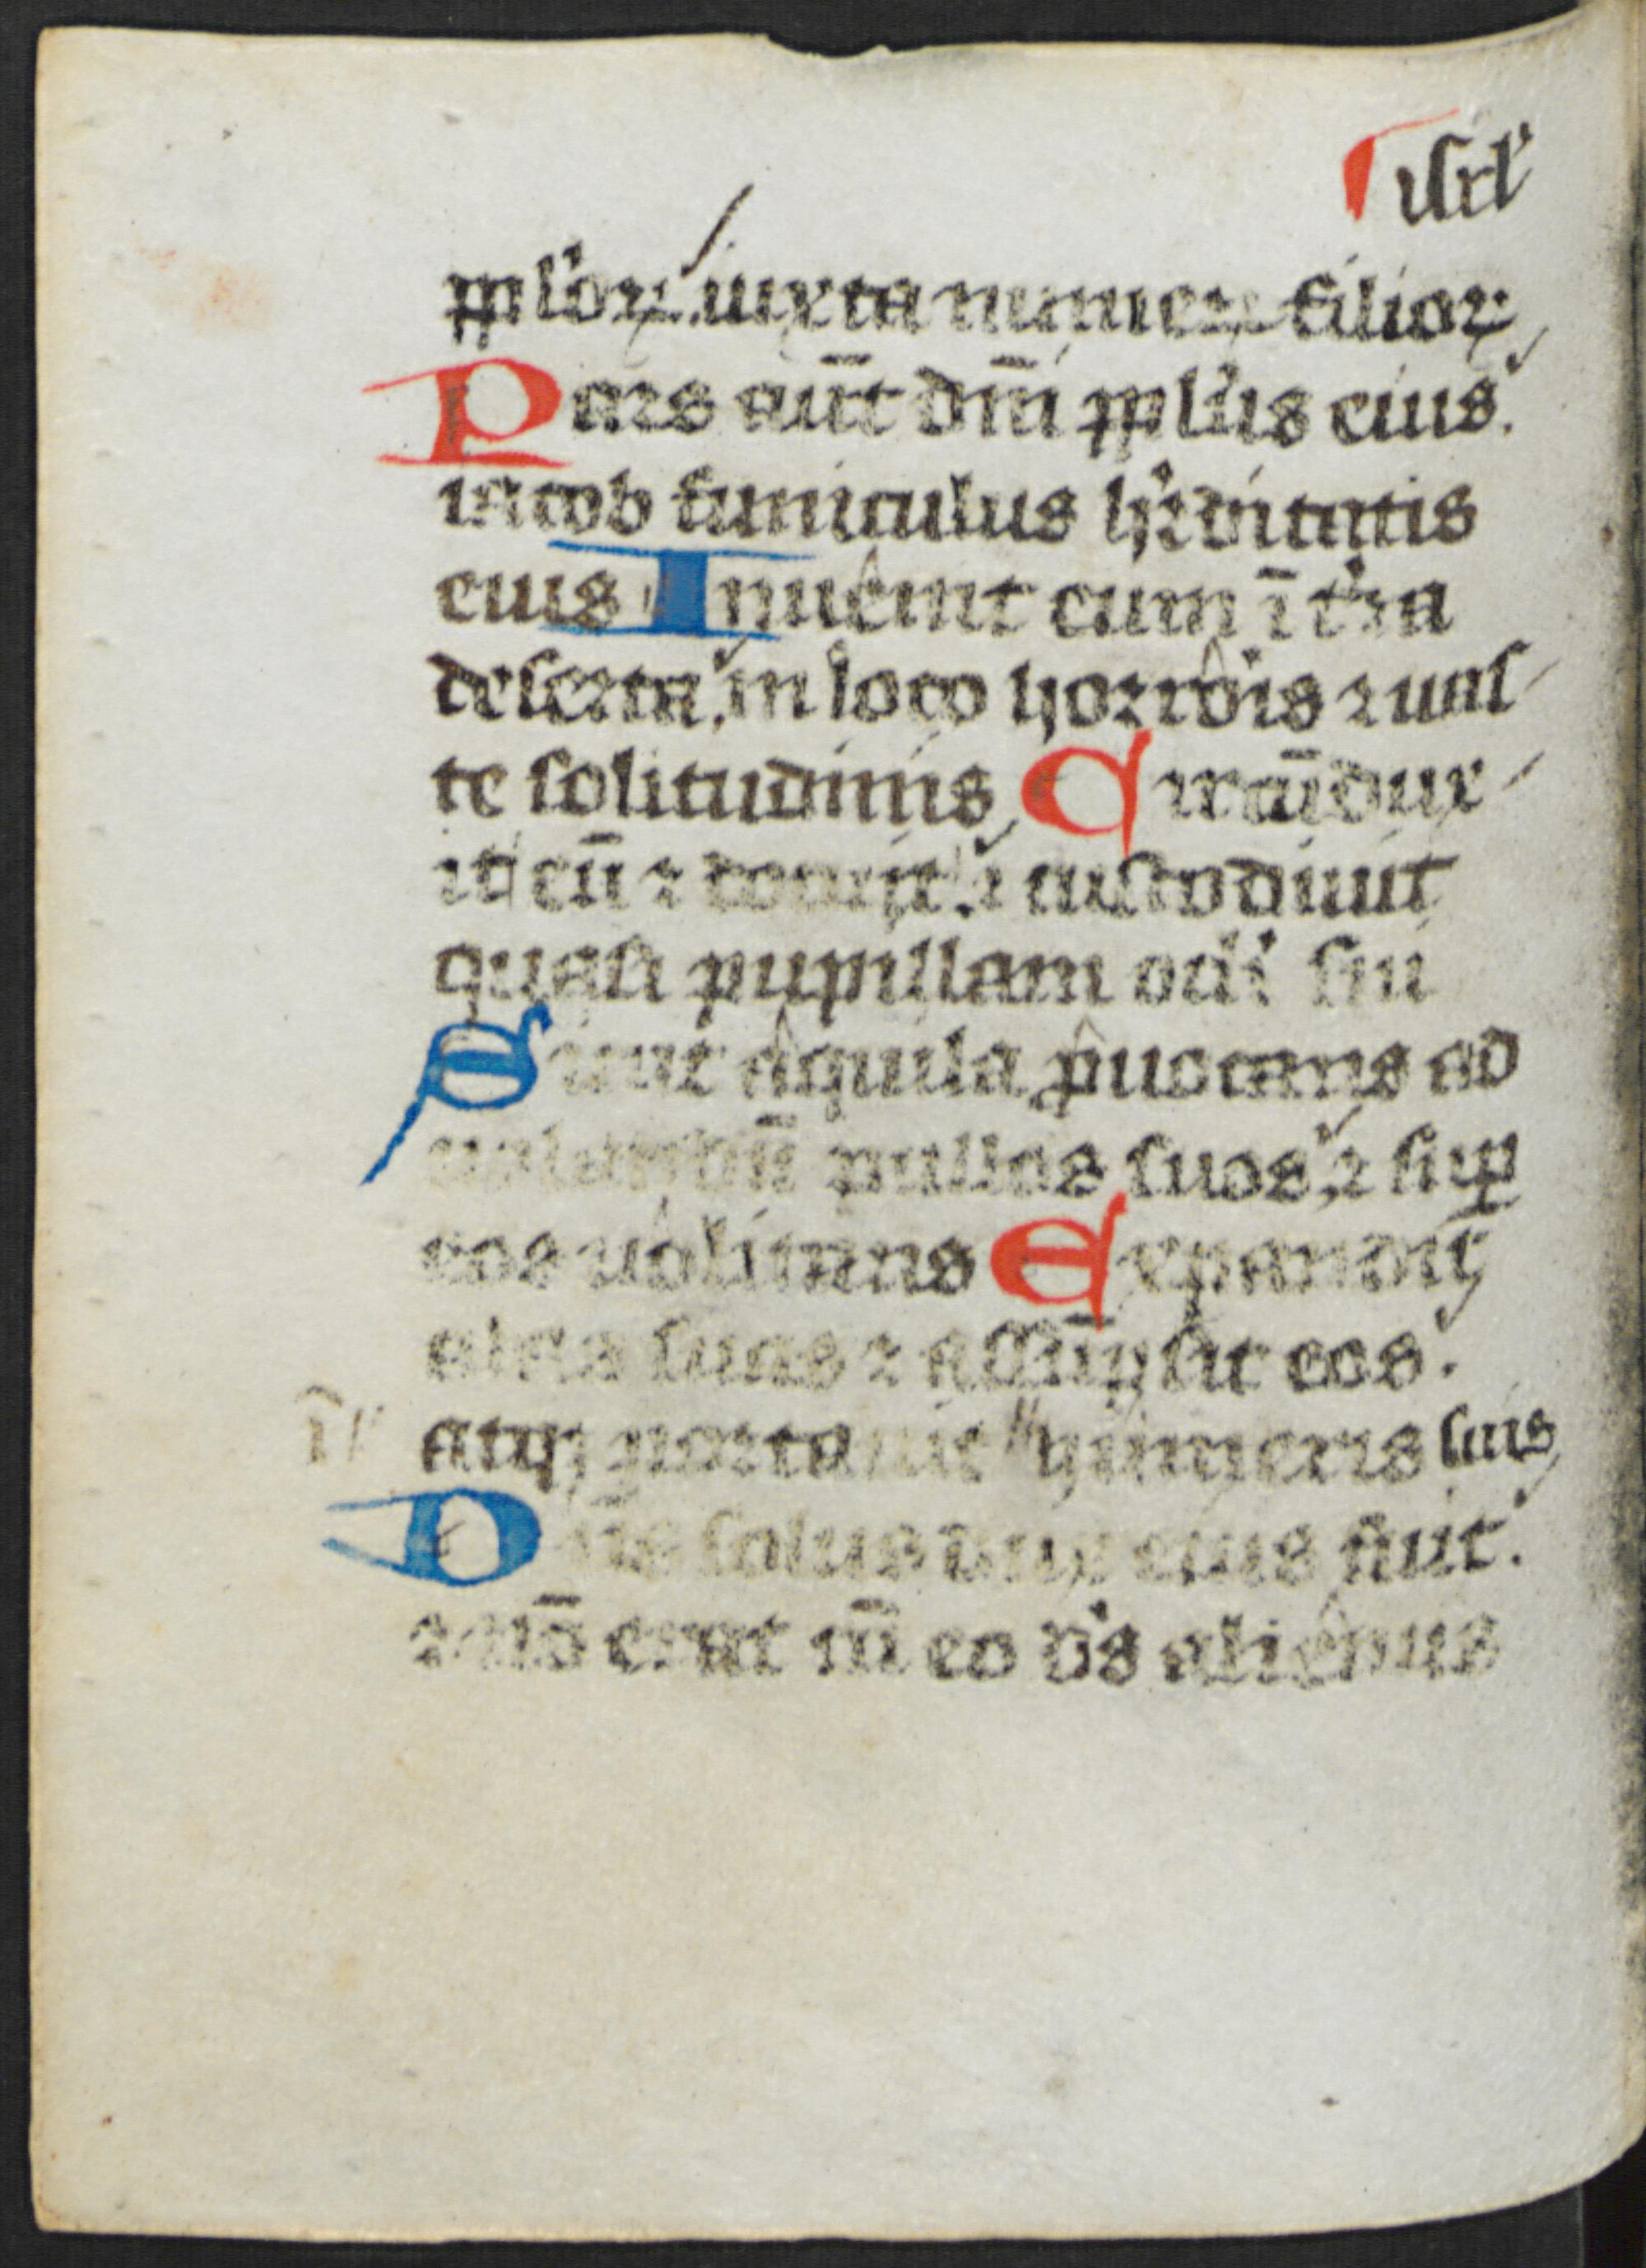 isrl'
pplor iuxta numer filior
Pars aūt dn̄i pplus eius.
iacob funiculus hr̄ditatis
eius Inuenit eum ī t'ra
deserta, in loco horroris ⁊ uas
te solitudinis Circūdux
it eū ⁊ docuit. ⁊ custodiuit
quasi pupillam oc'li sui
Sicut aquila ꝓuocans ad
uolandū pullos suos, ⁊ sup̱
eos uolitans Expandit
alas suas ⁊ assūpsit eos.
atqꝫ portauit humeris suis
ī
Dn̄s solus dux eius fuit.
⁊ nō erat cū eo d's alienus